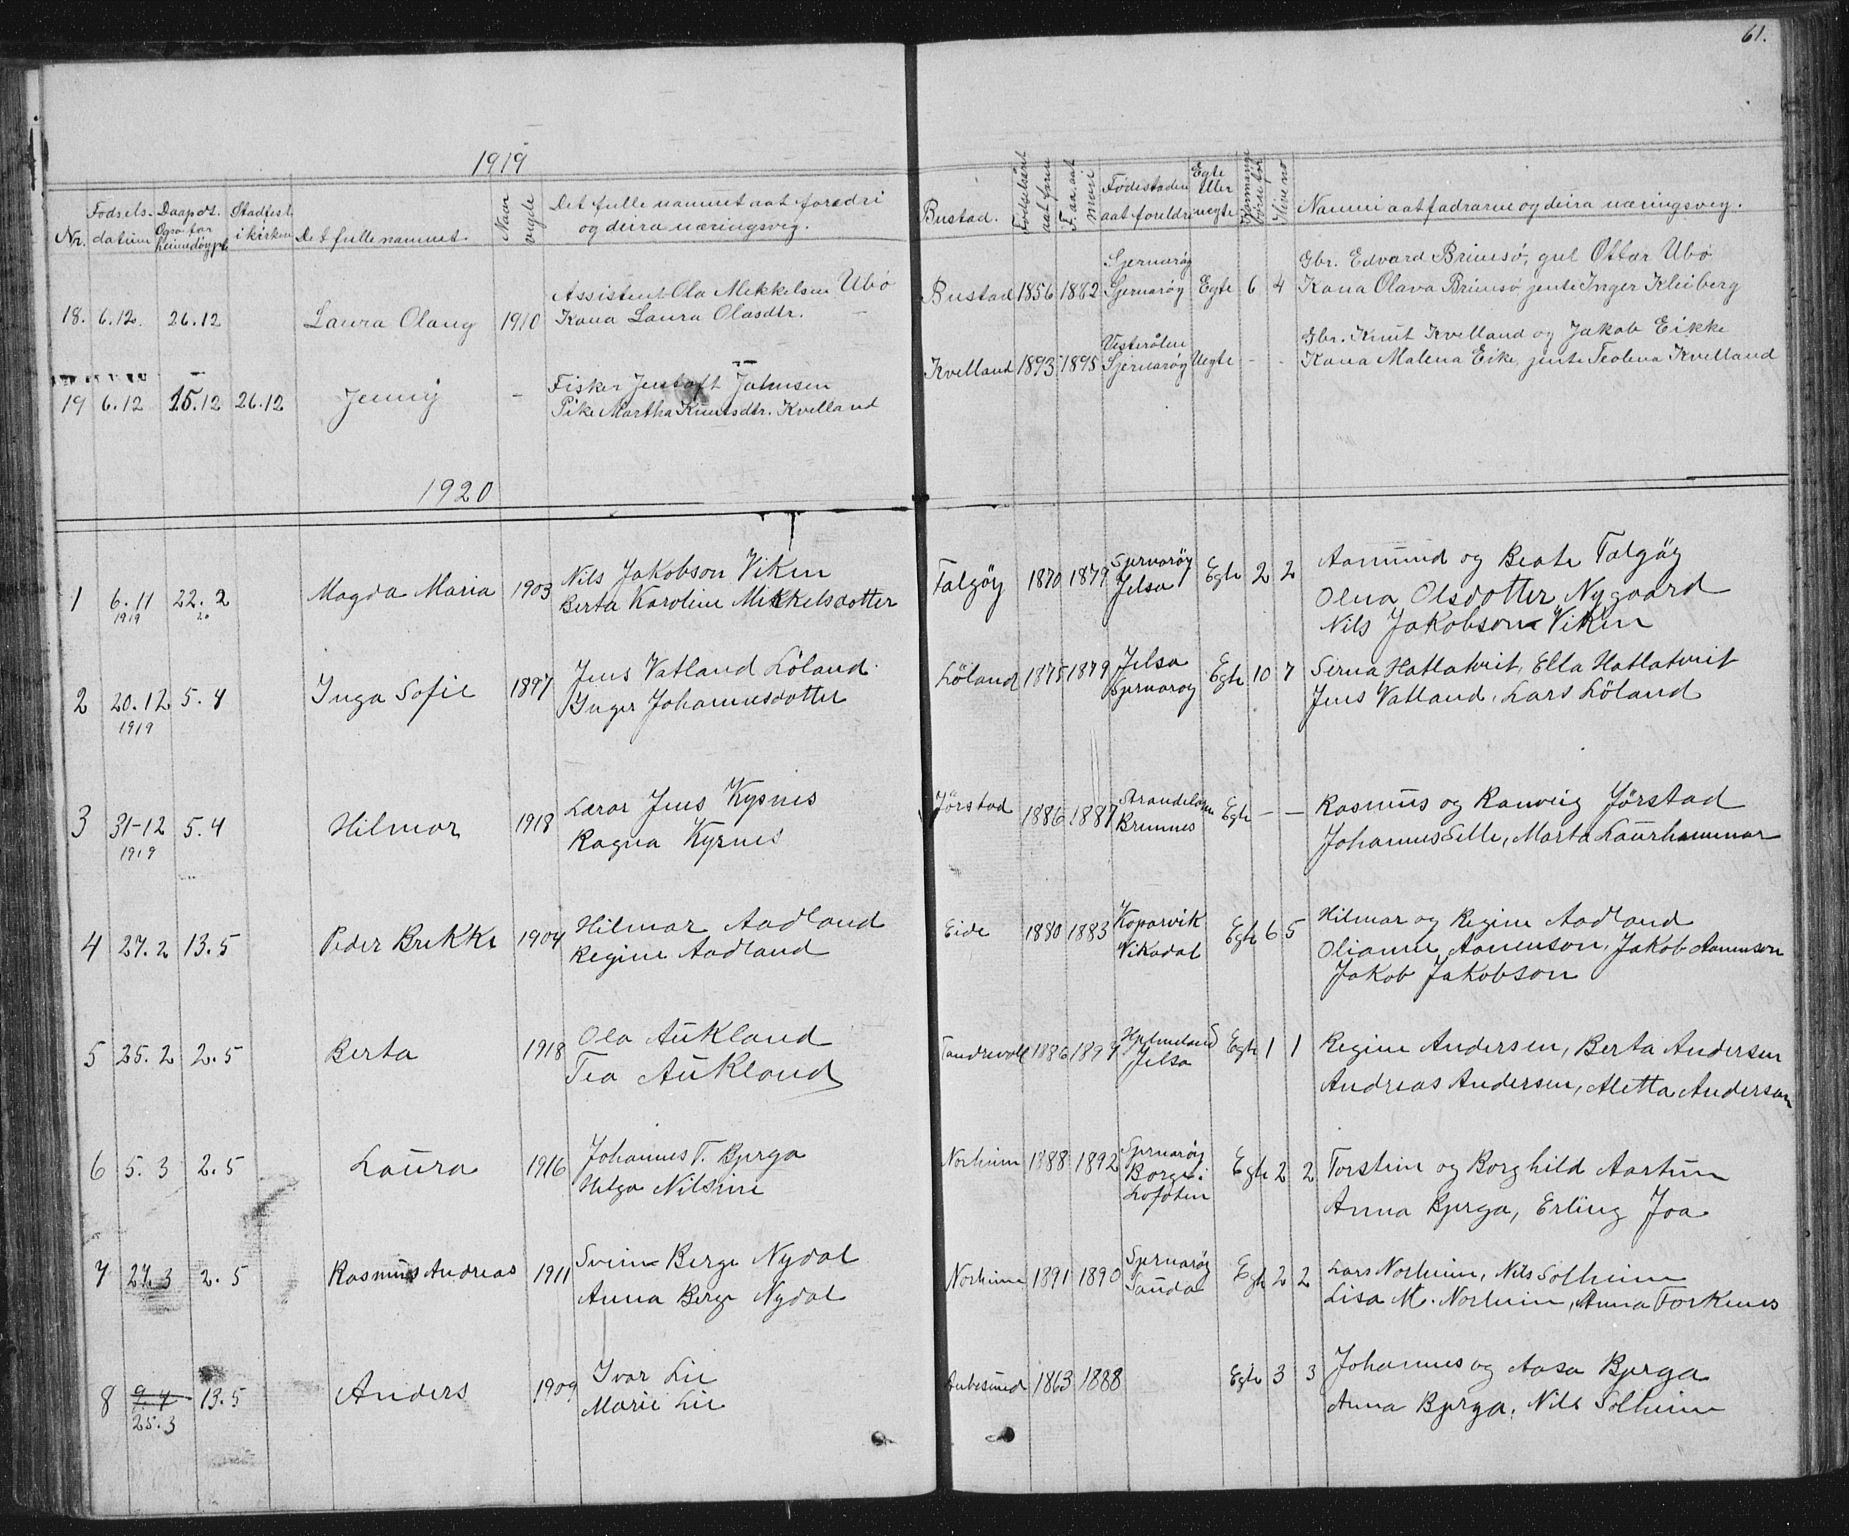 61.
1919
Nr.
Fødsels-
datum
Daapdt.
Ogso for
heimedøypte
Stadfest.
i kirken
Det fulle namnet
Naar
vigde
Det fulle namnet aat foreldri
og deira næringsveg.
Bustad.
Fødselsaaret
aat faren
F. aar. aat
mori
Fødestaden
aat foreldri
Egte
eller
uegte
Nanni aat fadrarne og deira næringsveg.
18. 6.12. 26.12 Laura Olaug 1910
Assistent Ola Mikkelsen Ubø
Kona Laura Olasdtr. —
Bustad 1856 1882
Sjernarøy
Sjernarøy
Egte 6 4
Gbr. Edvard Brimsø, gut Ottar Ubø
Kona Olava Brimsø jente Inger Kleiberg
19 6.12 15.12 26.12 Jenny -
Fisker Jentoft Johnsen
Pike Martha Knutsdtr. Kvelland
Kvelland 1893 1895
Vesterålen
Sjernarøy
Uegte - -
Gbr. Knut Kvelland og Jakob Eikke
Kona Malena Eike, jente Teolena Kvelland
1920
1 6.11 22.2 Magda Maria 1903
1919 20
Nils Jakobson Viken
Berta Karoline Mikkelsdotter
Talgøy 1870 1879
Sjernarøy
Jelsa
Egte 2 2
Aamund og Beate Talgøy
Olena Olsdotter Nygaard
Nils Jakobson Viken
2 20.12 5.4 Inga Sofie 1897
1919
Jens Vatland Löland.
Inger Johannesdotter
Löland 1875 1879
Jelsa
Sjernarøy
Egte 10 7
Serna Hatlatveit, Ella Hatlatveit
Jens Vatland, Lars Löland
3 31-12 5.4 Hilmar 1918
1919
Lærar Jens Kysnes
Ragna Kysnes
Jørstad 1886 1887
Strandebarm
Bremnes
Egte — —
Rasmus og Ranveig Jørstad
Johannes Selle, Marta Laurhammar
4 27.2 13.5 Peder Brekke 1904
Hilmar Aadland
Regine Aadland
Eide 1880 1883
Kopervik
Vikadal
Egte 6 5
Hilmar og Regine Aadland
Olianne Aanenson, Jakob Aanenson
Jakob Jakobson
5 25.2 2.5 Berta 1918
Ola Aukland
Tea Aukland
1886 1894
Hjelmeland
Jelsa
Egte 1 1
Regine Andersen, Berta Andersen
Andreas Andersen, Aletta Anderson
6 5.3 2.5 Laura 1916
Johannes T. Bjerga
Helga Nilsine
Norheim 1888 1892
Sjernarøy
Borge i
Lofoten
Egte 2 2
Torstein og Borghild Aartun
Anna Bjerga, Erling Joa
7 27.3 2.5 Rasmus Andreas 1911
Svein Berge Nydal
Anna Berge Nydal
Norheim 1891 1890
Sjernarøy
Sauda
Egte 2 2
Lars Norheim, Nils Solheim
Lisa M. Norheim, Anna Torkenes
8 9.4 13.5 Anders 1909
25.3
Ivar Lie
Marie Lie
Aubesund 1863 1888
Egte 3 3
Johannes og Aasa Bjerga
Anna Bjerga, Nils Solheim